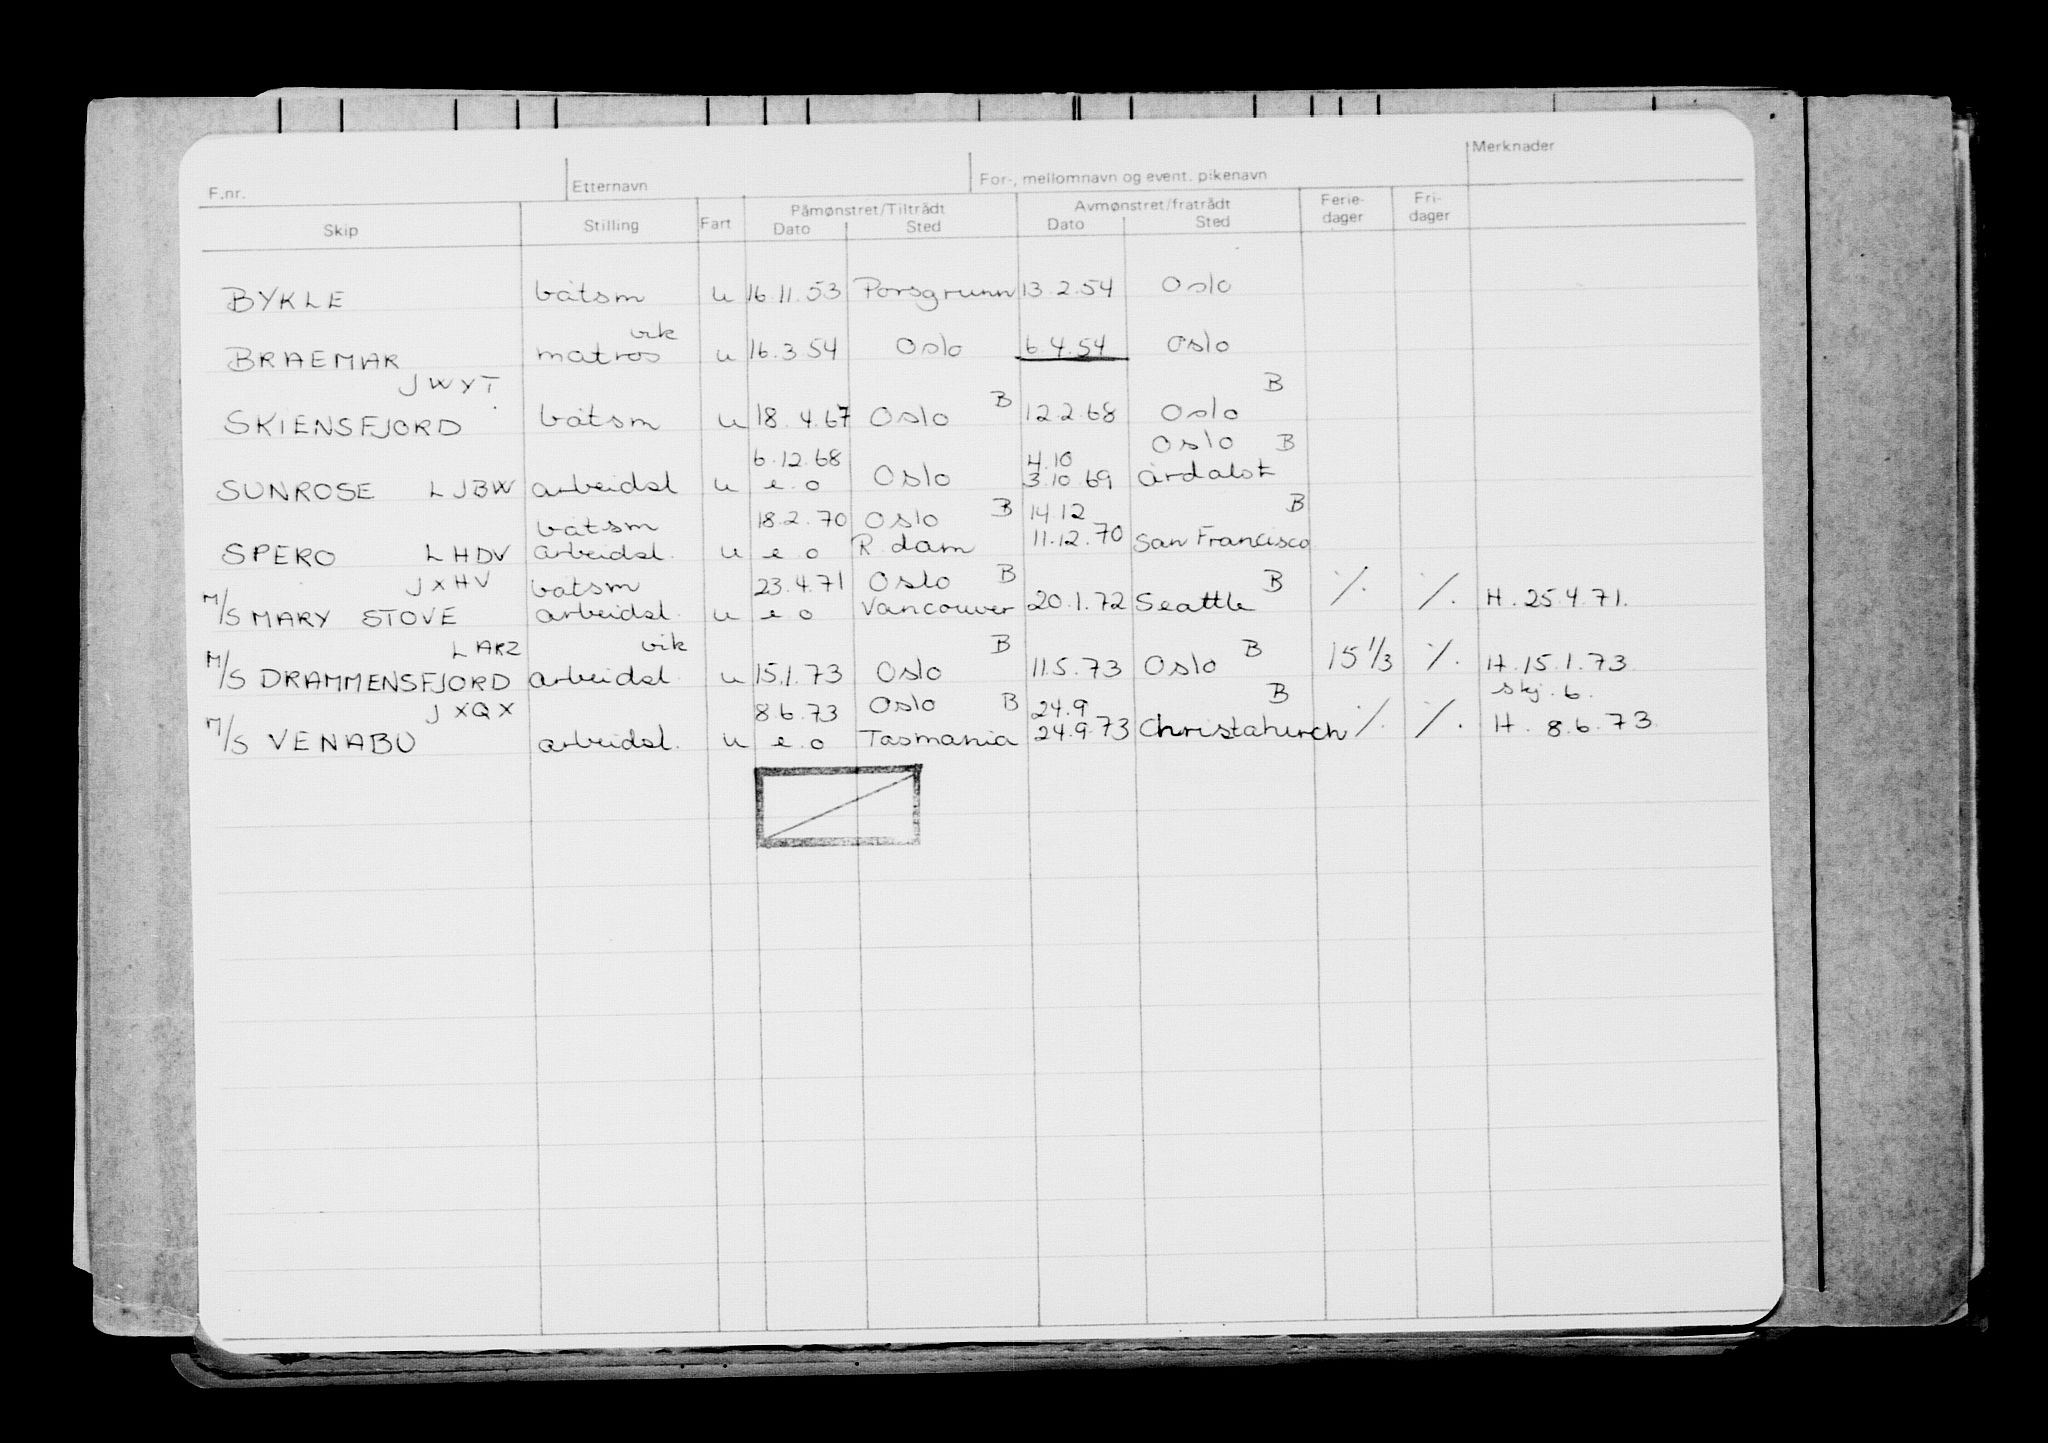 F.nr. Etternavn For-, mellomnavn og event. pikenavn Merknader
Skip Stilling Fart Påmønstret/Tiltrådt Avmønstret/fratrådt Ferie- Fri-
Dato Sted Dato Sted dager dager
BYKLE båtsm u 16.11.53 Porsgrunn 13.2.54 Oslo
vik
BRAEMAR matros u 16.3.54 Oslo 6.4.54 Oslo
JWYT B B
SKIENSFJORD båtsm u 18.4.67 Oslo 12.2.68 Oslo
6.12.68 4.10 Oslo B
SUNROSE LJBW arbeidsl u e.o Oslo 3.10.69 årdalst
båtsm 18.2.70 Oslo B 14.12 B
SPERO LHDV arbeidsl. u e o R.dam 11.12.70 San Francisco
JXHV båtsm 23.4.71 Oslo B B
M/S MARY STOVE arbeidsl. u e o Vancouver 20.1.72 Seattle ./. ./. H. 25.4.71.
LARZ vik B B
M/S DRAMMENSFJORD arbeidsl. u 15.1.73 Oslo 11.5.73 Oslo 15 1/3 ./. H. 15.1.73
JXQX 8.6.73 Oslo B 24.9 B skj. 6.
M/S VENABU arbeidsl. u e.o Tasmania 24.9.73 Christchurch ./. ./. H. 8.6.73